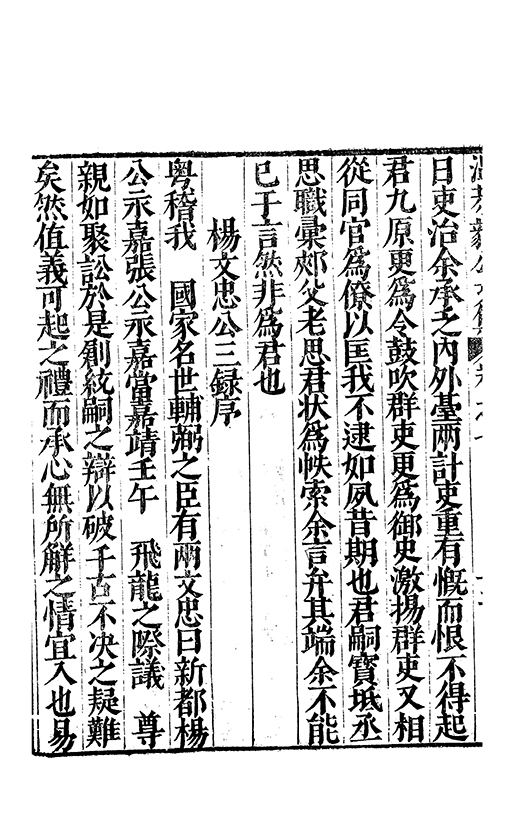 日吏治余承之內外臺兩計吏重有慨而恨不得起
君九原更爲令鼓吹群吏更爲御史激揚群吏又相
從同官爲僚以匡我不逮如夙昔期也君嗣寶坻丞
思職彙郟父老思君狀爲帙索余言弁其端余不能
已于言然非爲君也
楊文忠公三録序
粤稽我 國家名世輔弼之臣有兩文忠曰新都楊
公永嘉張公永嘉當嘉靖壬午 飛龍之際議 尊
親如聚訟於是創統嗣之辯以破千古不決之疑難
矣然值義可起之禮而承心無所解之情宜入也易